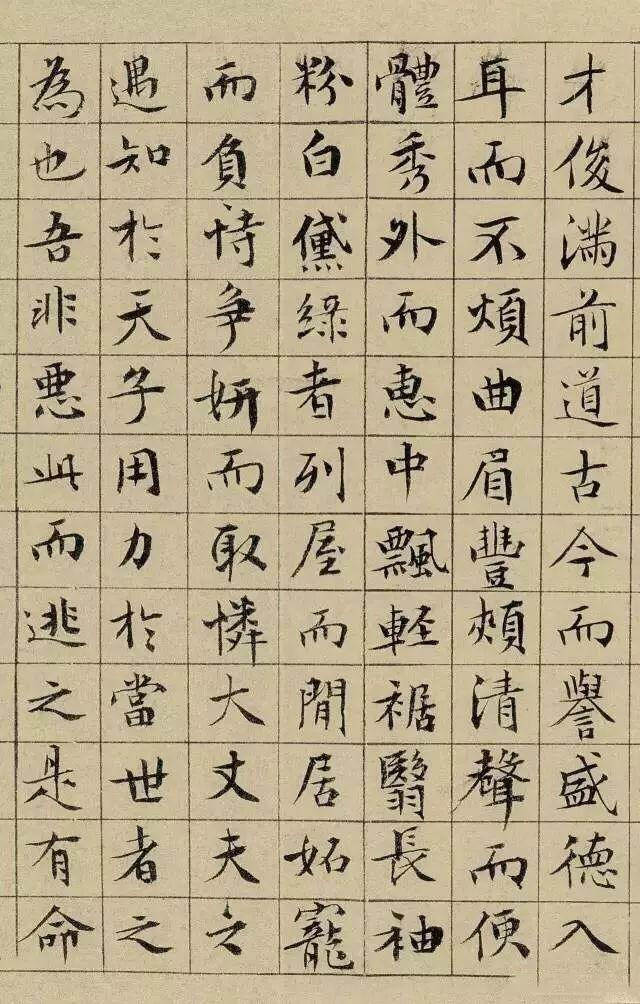 才俊滿前道古今而譽盛德入
耳而不煩曲眉豐頰清聲而便
體秀外而惠中飄輕裾翳長袖
粉白黛綠者列屋而閒居妬寵
而負恃爭妍而取憐大丈夫之
遇知於天子用力於當世者之
為也吾非惡此而逃之是有命